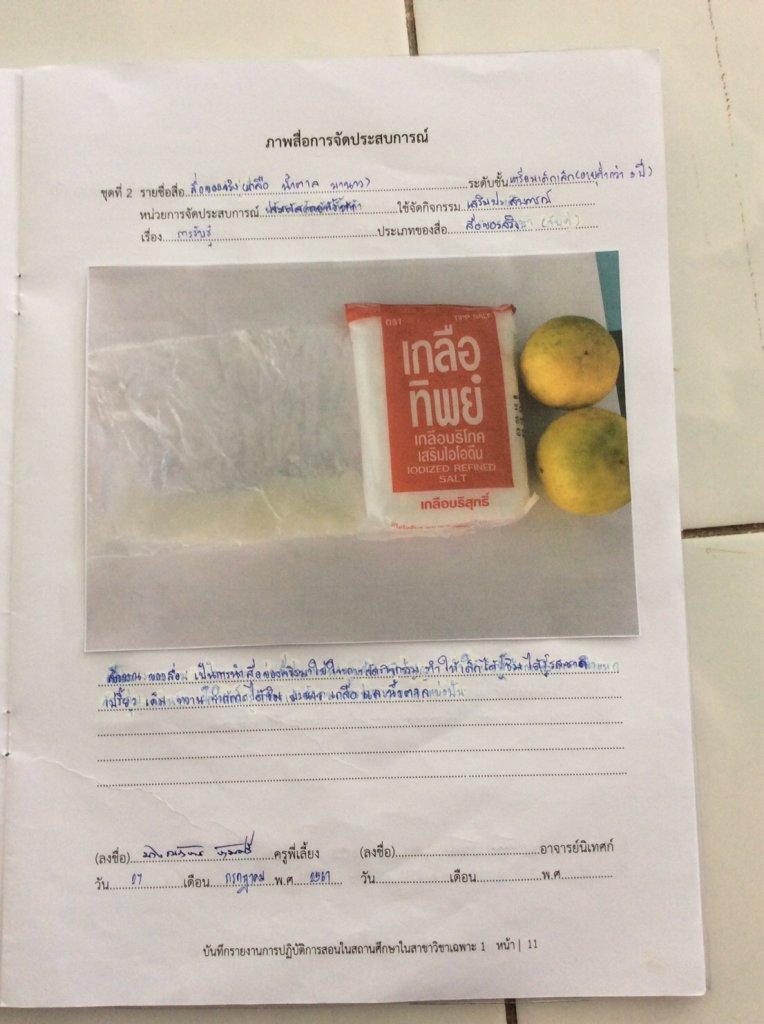 ภาพสื่อการจัดประสบการณ์
ชุดที่ 2 รายชื่อสื่อ สื่อของจริง (เกลือ น้ำตาล มะนาว) ระดับชั้น เตรียมเด็กเล็ก (อายุต่ำกว่า 3 ปี)
หน่วยการจัดประสบการณ์ ใช้จัดกิจกรรม เสริมประสบการณ์
เรื่อง การรับรู้ ประเภทของสื่อ สื่อของจริง
DST TIPP SALT
เกลือ
ทิพย์
เกลือบริโภค
เสริมไอโอดีน
IODIZED REFINED
SALT
เกลือบริสุทธิ์
เป็นการนำสื่อของจริงมาใช้ในการจัดกิจกรรม ทำให้เด็กได้ ชิม ได้รู้รสชาติ
เปรี้ยว เค็ม หวาน ได้ชิม มะนาว เกลือ และน้ำตาล
(ลงชื่อ) ครูพี่เลี้ยง (ลงชื่อ) อาจารย์นิเทศก์
วัน 07 เดือน กรกฎาคม พ.ศ. 2567 วัน เดือน พ.ศ.
บันทึกรายงานการปฏิบัติการสอนในสถานศึกษาในสาขาวิชาเฉพาะ 1 หน้า | 11